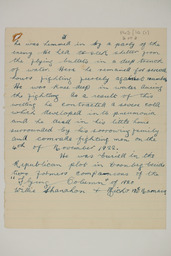 he was hemmed in by a party of the
enemy. He had to seek shelter from
the flying bullets in a deep trench
of water. Here he remained for several
hours fighting fiercely against
He was knee deep in water during
the fighting. As a result of this
wetting he contracted a severe cold
which developed into pneumonia
and he died in his little home
surrounded by his sorrowing family
and comrade fighting men on the
6th of November 1922.
He was buried in the
Republican plot in
his former companions of the
"Flying Column" of 1920
Willie Shanahan &